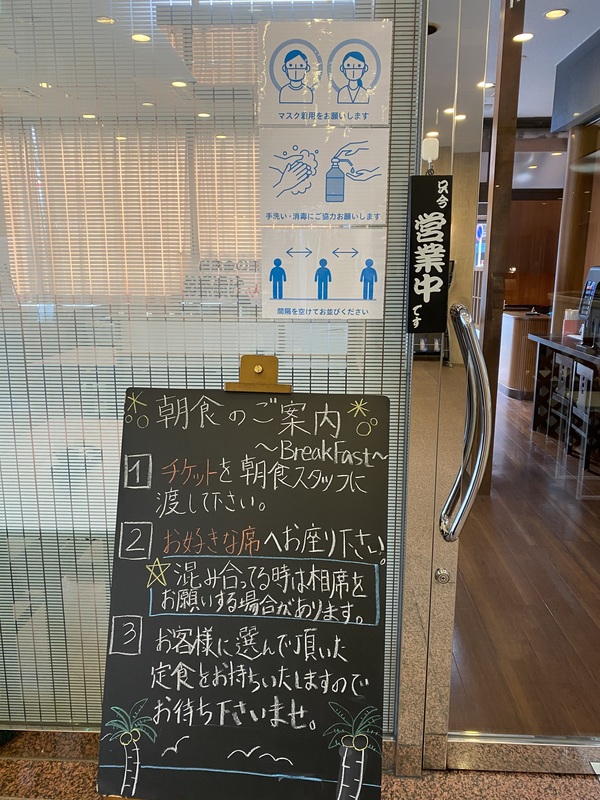 マスク着用をお願いします
手洗い・消毒にご協力お願いします
間隔を空けてお並びください
只今
営業中
です
朝食のご案内
～BreakFast～
1 チケットを朝食スタッフに
渡して下さい。
2 お好きな席へお座り下さい。
☆混み合ってる時は相席を
お願いする場合があります。
3 お客様に選んで頂いた
定食をお持ちいたしますので
お待ち下さいませ。